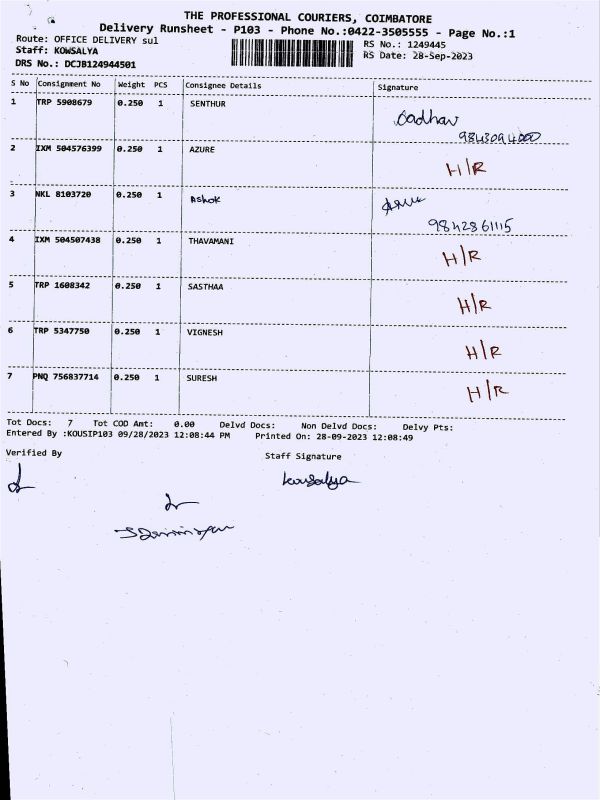 THE PROFESSIONAL COURIERS, COIMBATORE
Delivery Runsheet - P103 - Phone No.:0422-3505555 - Page No.:1
Route: OFFICE DELIVERY sul
RS No.: 1249445
Staff: KOWSALYA
RS Date: 28-Sep-2023
DRS No.: DCJB124944501
S No Consignment No Weight PCS Consignee Details Signature
1 TRP 5908679 0.250 1 SENTHUR
9843094000
2 IXM 504576399 0.250 1 AZURE H/R
3 NKL 8103720 0.250 1 Ashok
9842861115
4 IXM 504507438 0.250 1 THAVAMANI H/R
5 TRP 1608342 0.250 1 SASTHAA H/R
6 TRP 5347750 0.250 1 VIGNESH H/R
7 PNQ 756837714 0.250 1 SURESH H/R
Tot Docs: 7 Tot COD Amt: 0.00 Delvd Docs: Non Delvd Docs: Delvy Pts:
Entered By :KOUSIP103 09/28/2023 12:08:44 PM Printed On: 28-09-2023 12:08:49
Verified By
Staff Signature
kowsalya